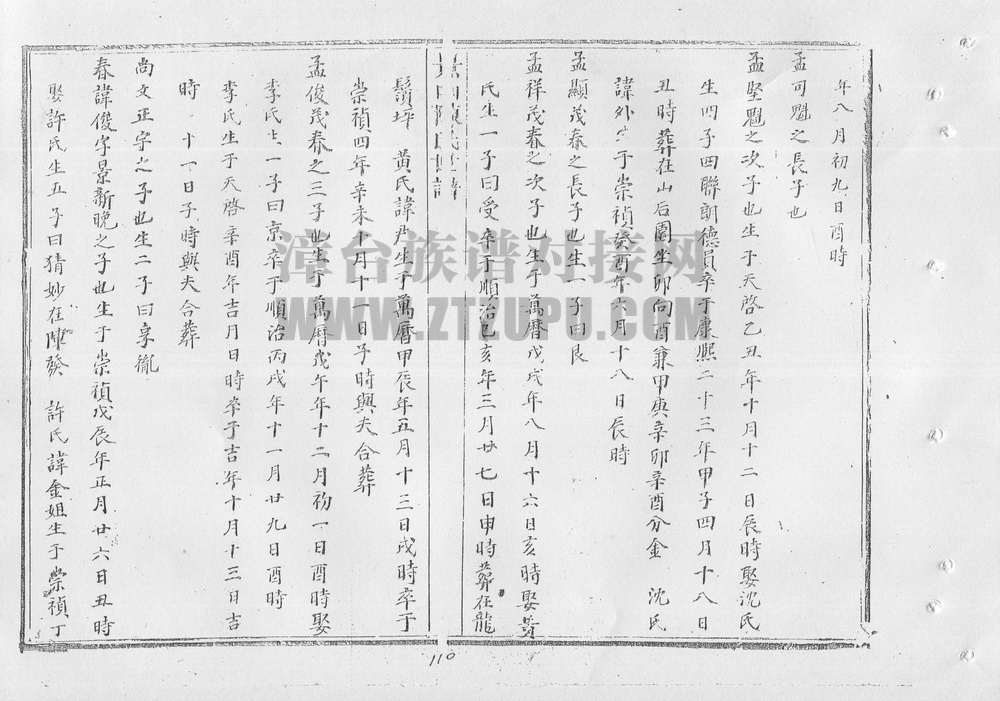 年八月初九日酉時
孟可魁之長子也
孟堅魁之次子也生于天啓乙丑年十月十二日辰時娶沈氏
生四子四聯朗德員卒于康熙二十三年甲子四月十八日
丑時葬在山后園坐卯向酉兼甲庚辛卯辛酉分金 沈氏
諱外生于崇禎癸酉年六月十八日辰時
孟顯茂春之長子也生一子曰良
孟祥茂春之次子也生于萬曆戊戌年八月十六日亥時娶黃
氏生一子曰受卒于順治己亥年三月廿七日申時葬在龍
鬚坪 黃氏諱尹生于萬曆甲辰年五月十三日戌時卒于
崇禎四年辛未十月十一日子時與夫合葬
孟俊茂春之三子也生于萬曆戊午年十二月初一日酉時娶
李氏生一子曰京卒于順治丙戌年十一月廿九日酉時
李氏生于天啓辛酉年吉月日時卒于吉年十月十三日吉
時 十一日子時與夫合葬
尚文正字之子也生二子曰享胤
春諱俊字景新晚之子也生于崇禎戊辰年正月廿六日丑時
娶許氏生五子曰猜妙在陣發 許氏諱金姐生于崇禎丁
110
漳台族谱对接网
WWW.ZTZUPU.COM